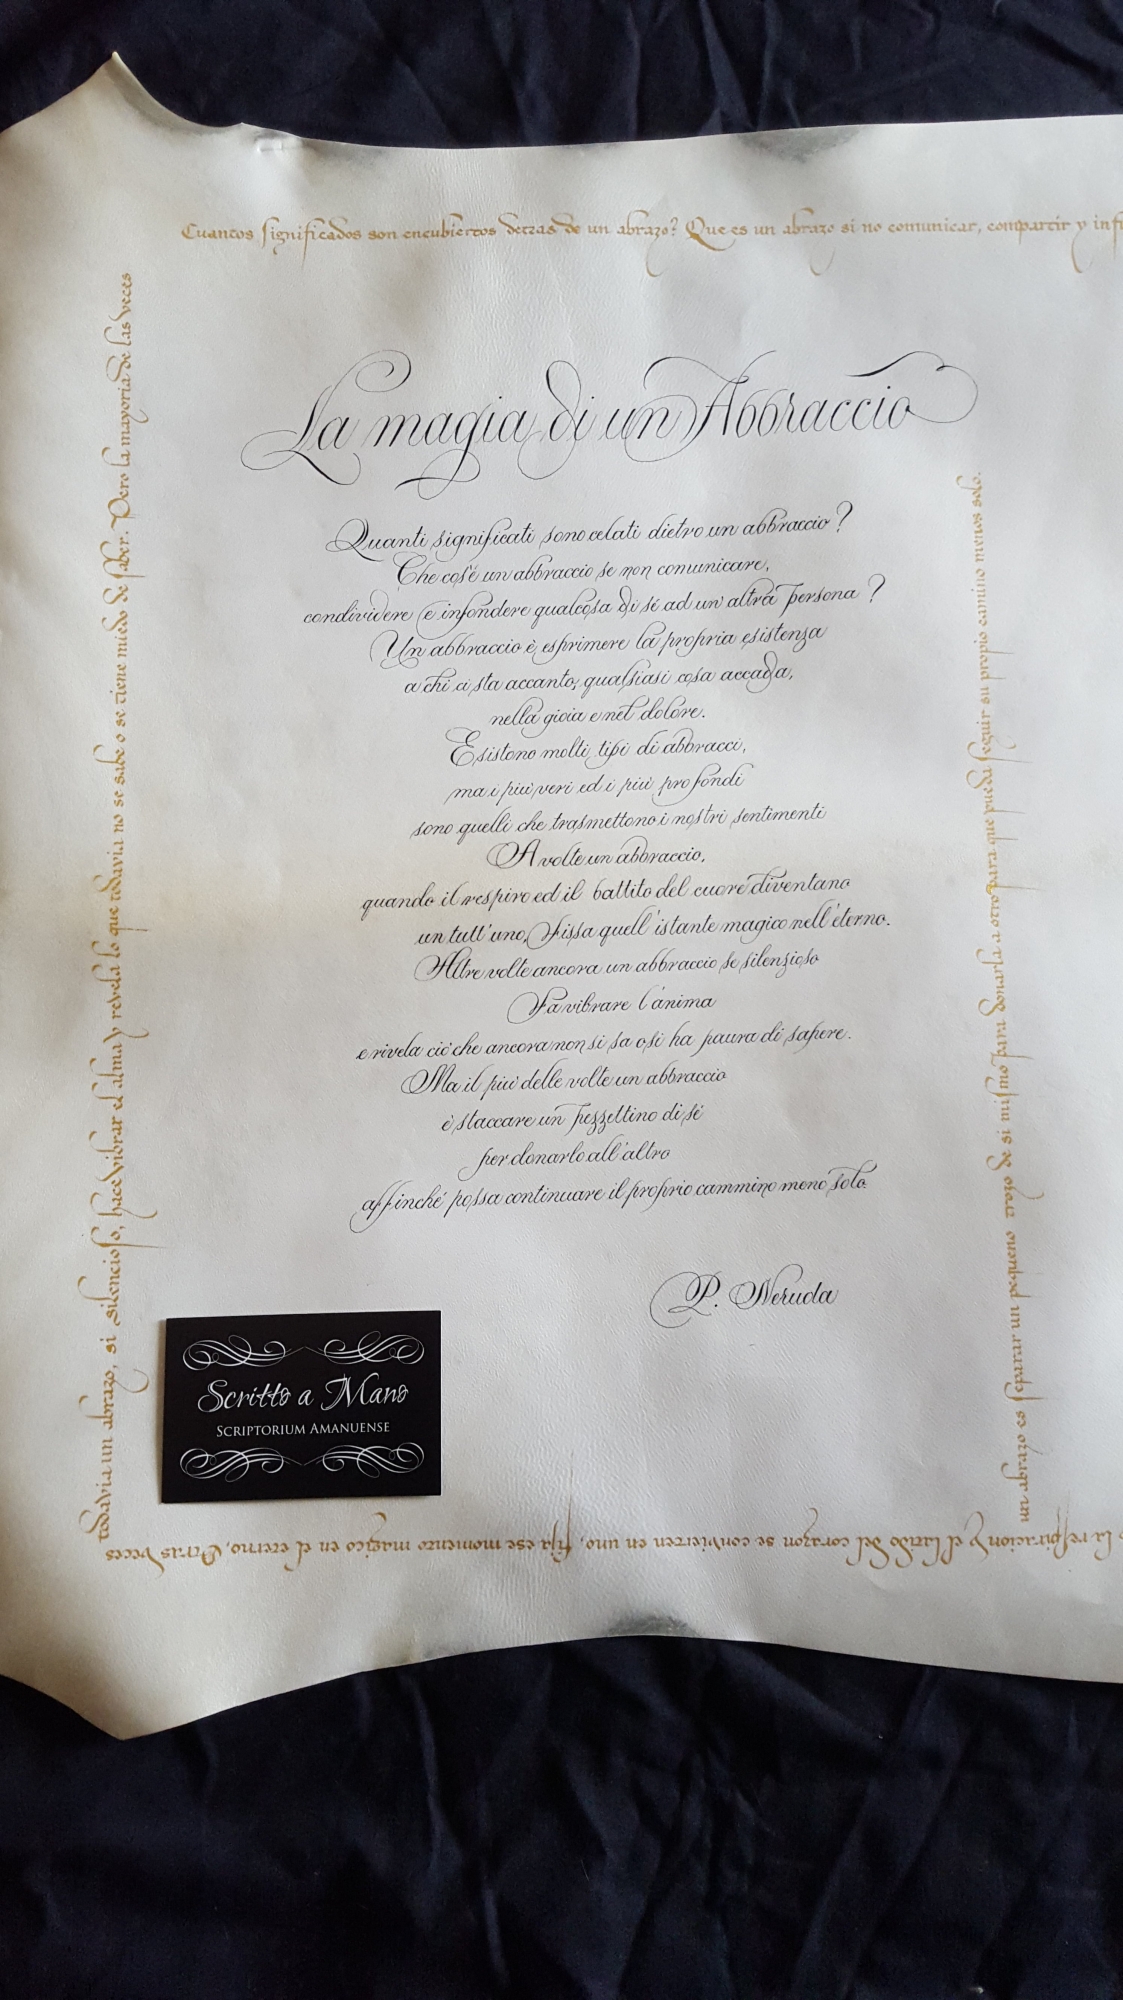 Cuantos significados son encubiertos detras de un abrazo? Que es un abrazo si no comunicar, compartir y
La magia di un Abbraccio
Quanti significati sono celati dietro un abbraccio?
Che cos'è un abbraccio se non comunicare,
condividere e infondere qualcosa di sé ad un'altra persona?
Un abbraccio è esprimere la propria esistenza
a chi ci sta accanto, qualsiasi cosa accada,
nella gioia e nel dolore.
Esistono molti tipi di abbracci,
ma i più veri ed i più profondi
sono quelli che trasmettono i nostri sentimenti
A volte un abbraccio,
quando il respiro ed il battito del cuore diventano
un tutt'uno, fissa quell'istante magico nell'eterno.
Altre volte ancora un abbraccio se silenzioso
Fa vibrare l'anima
e rivela ciò che ancora non si sa o si ha paura di sapere.
Ma il più delle volte un abbraccio
è staccare un pezzettino di sé
per donarlo all'altro
affinché possa continuare il proprio cammino meno solo.
P. Neruda
la respiracion y el latido del corazon se convierten en uno, fija ese momento magico en el eterno, Otras veces
todavia un abrazo, si silencioso, hace vibrar el alma y revela lo que todavia no se sabe o se tiene miedo de saber. Pero la mayoria de las veces
un abrazo es separar un pequeno trozo de si mismo para donarla a otro para que pueda seguir su propio camino menos solo.
Scritto a Mano
SCRIPTORIUM AMANUENSE